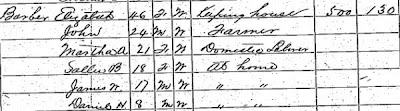 Barber Elizabeth 46 F W Keeping house 500 130
John 24 M W Farmer
Martha A 21 F W Domestic Laborer
Sallie B 18 F W At home
James W 17 M W " "
Daniel N 8 M W " "